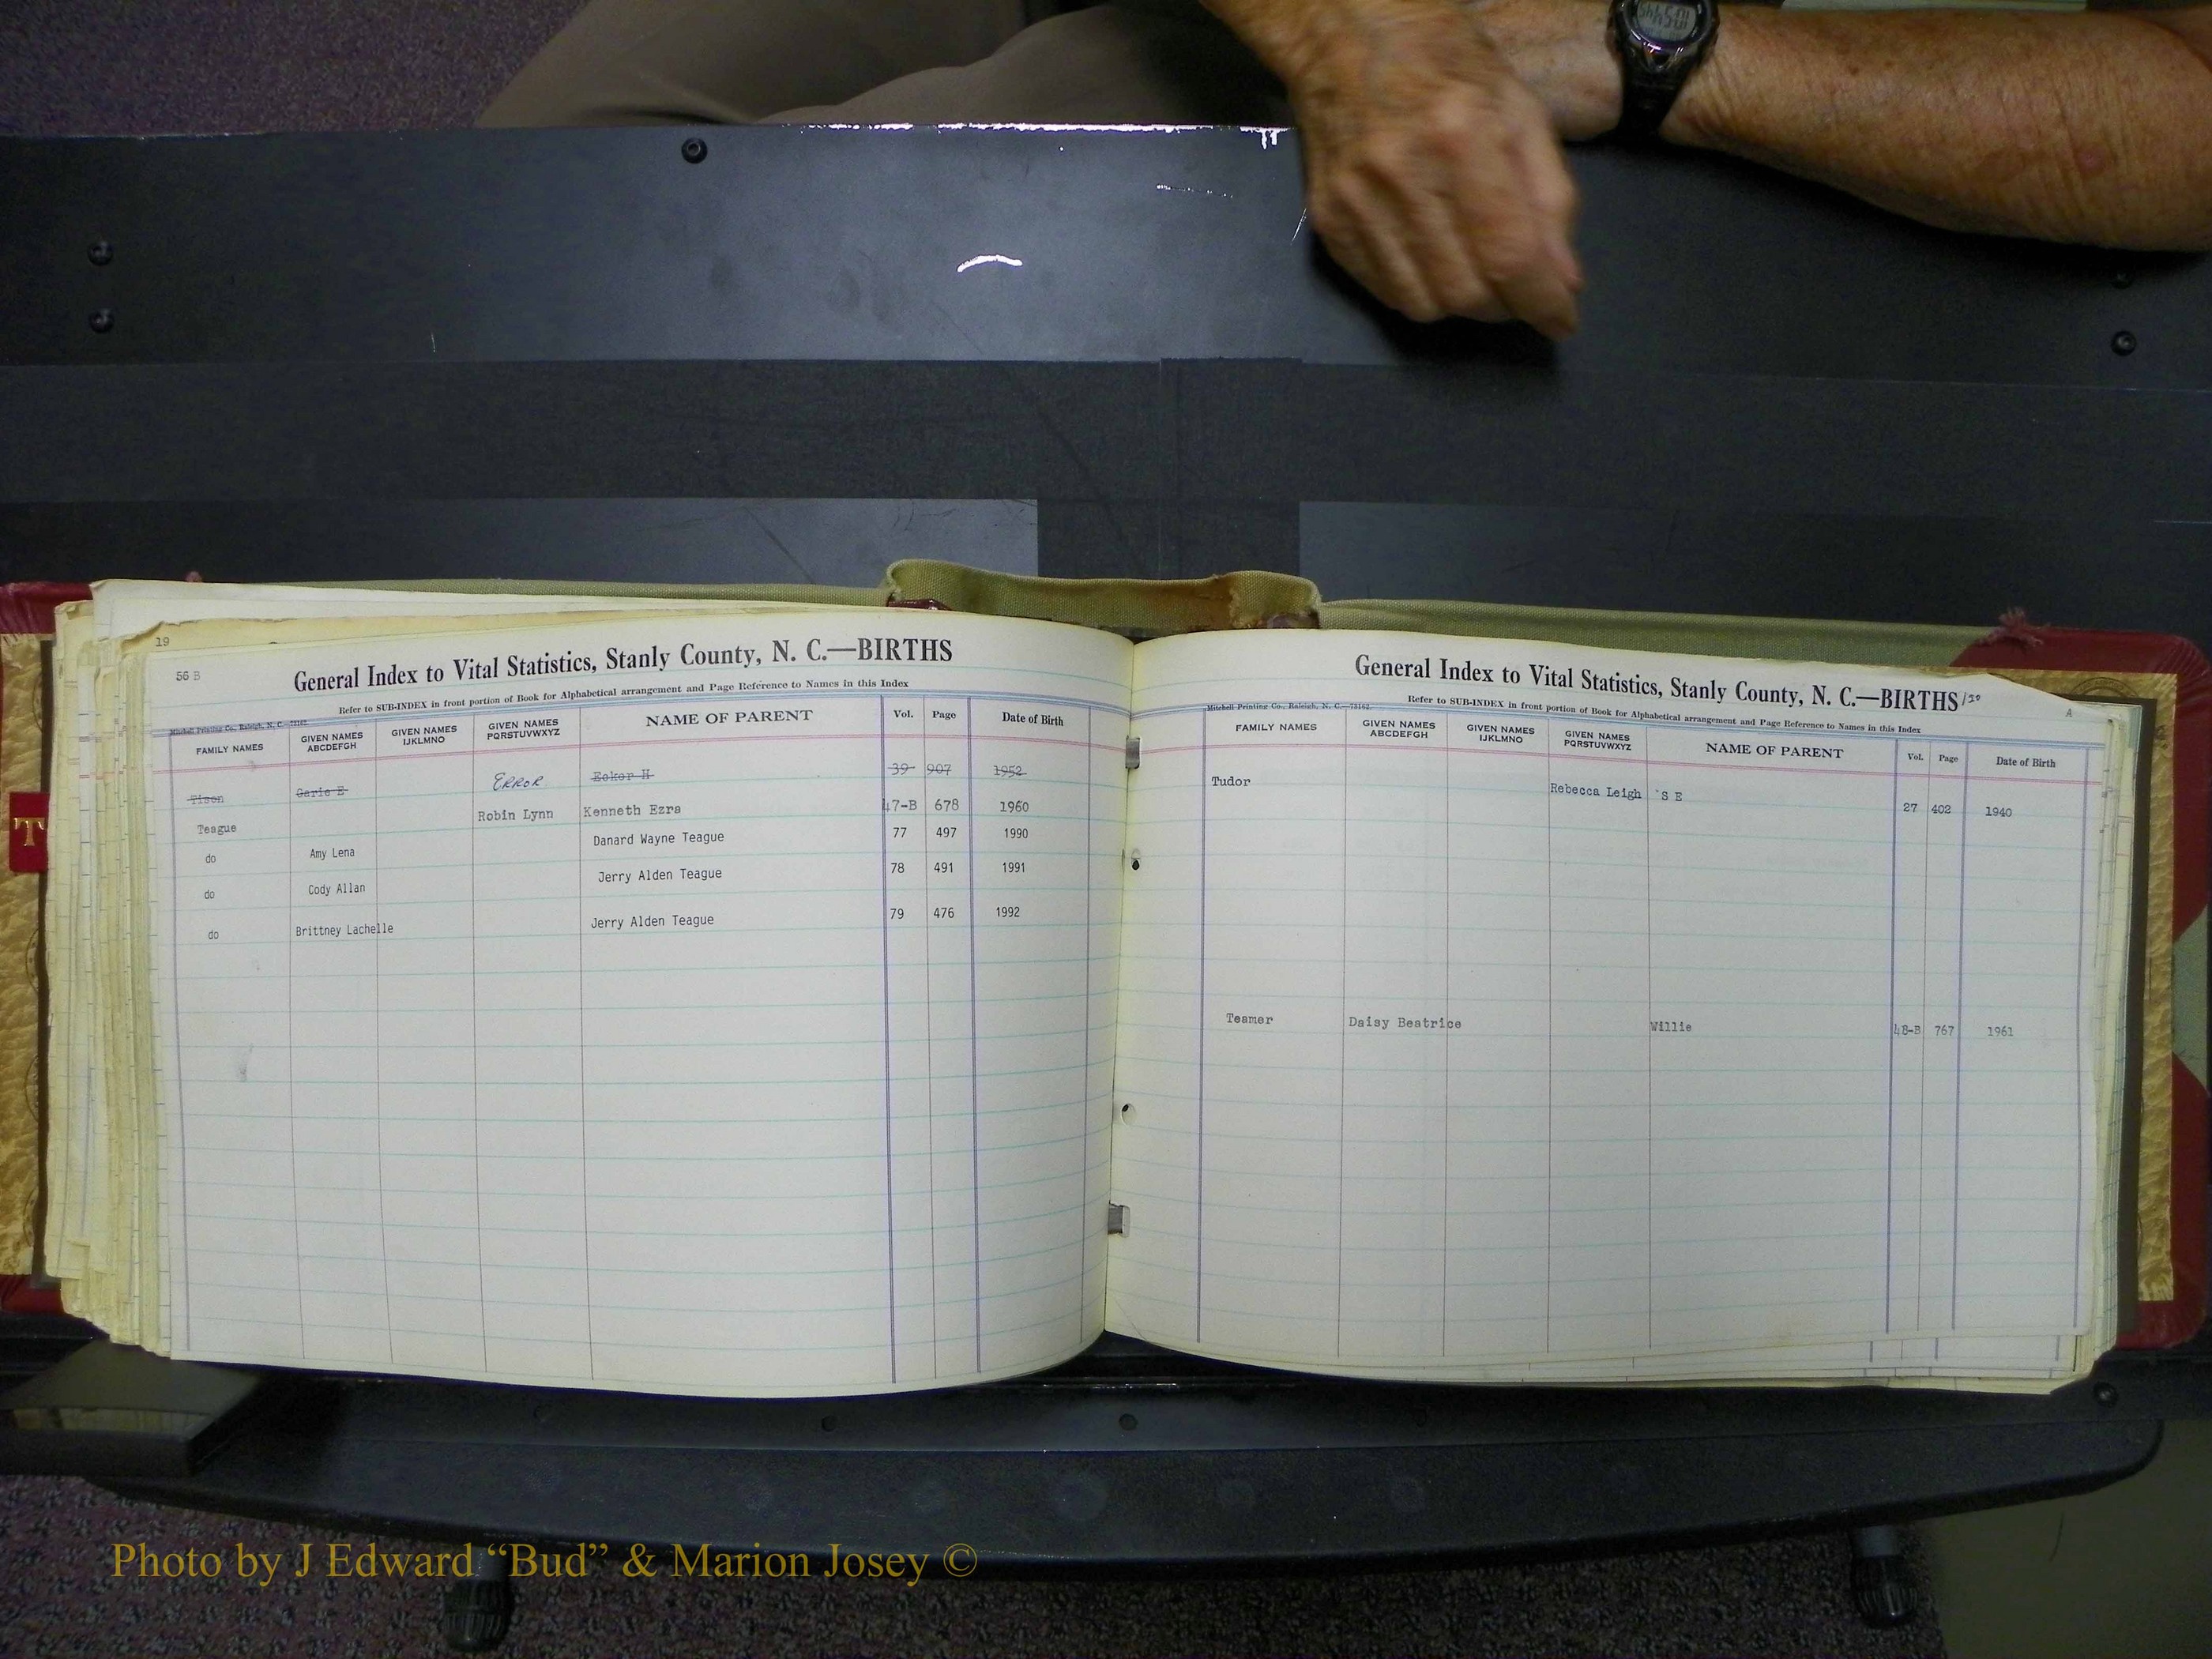 19
56 B
General Index to Vital Statistics, Stanly County, N. C.—BIRTHS
Refer to SUB-INDEX in front portion of Book for Alphabetical arrangement and Page Reference to Names in this Index
Mitchell Printing Co., Raleigh, N. C.
FAMILY NAMES GIVEN NAMES ABCDEFGH GIVEN NAMES IJKLMNO GIVEN NAMES PQRSTUVWXYZ NAME OF PARENT Vol. Page Date of Birth
Tison Garie E ERROR Ecker H 39 907 1952
Teague Robin Lynn Kenneth Ezra 47-B 678 1960
do Amy Lena Danard Wayne Teague 77 497 1990
do Cody Allan Jerry Alden Teague 78 491 1991
do Brittney Lachelle Jerry Alden Teague 79 476 1992
T
General Index to Vital Statistics, Stanly County, N. C.—BIRTHS
A
Refer to SUB-INDEX in front portion of Book for Alphabetical arrangement and Page Reference to Names in this Index
Mitchell Printing Co., Raleigh, N. C.—73162
FAMILY NAMES GIVEN NAMES ABCDEFGH GIVEN NAMES IJKLMNO GIVEN NAMES PQRSTUVWXYZ NAME OF PARENT Vol. Page Date of Birth
Tudor Rebecca Leigh S E 27 402 1940
Teamer Daisy Beatrice Willie 48-B 767 1961
Photo by J Edward “Bud” & Marion Josey ©